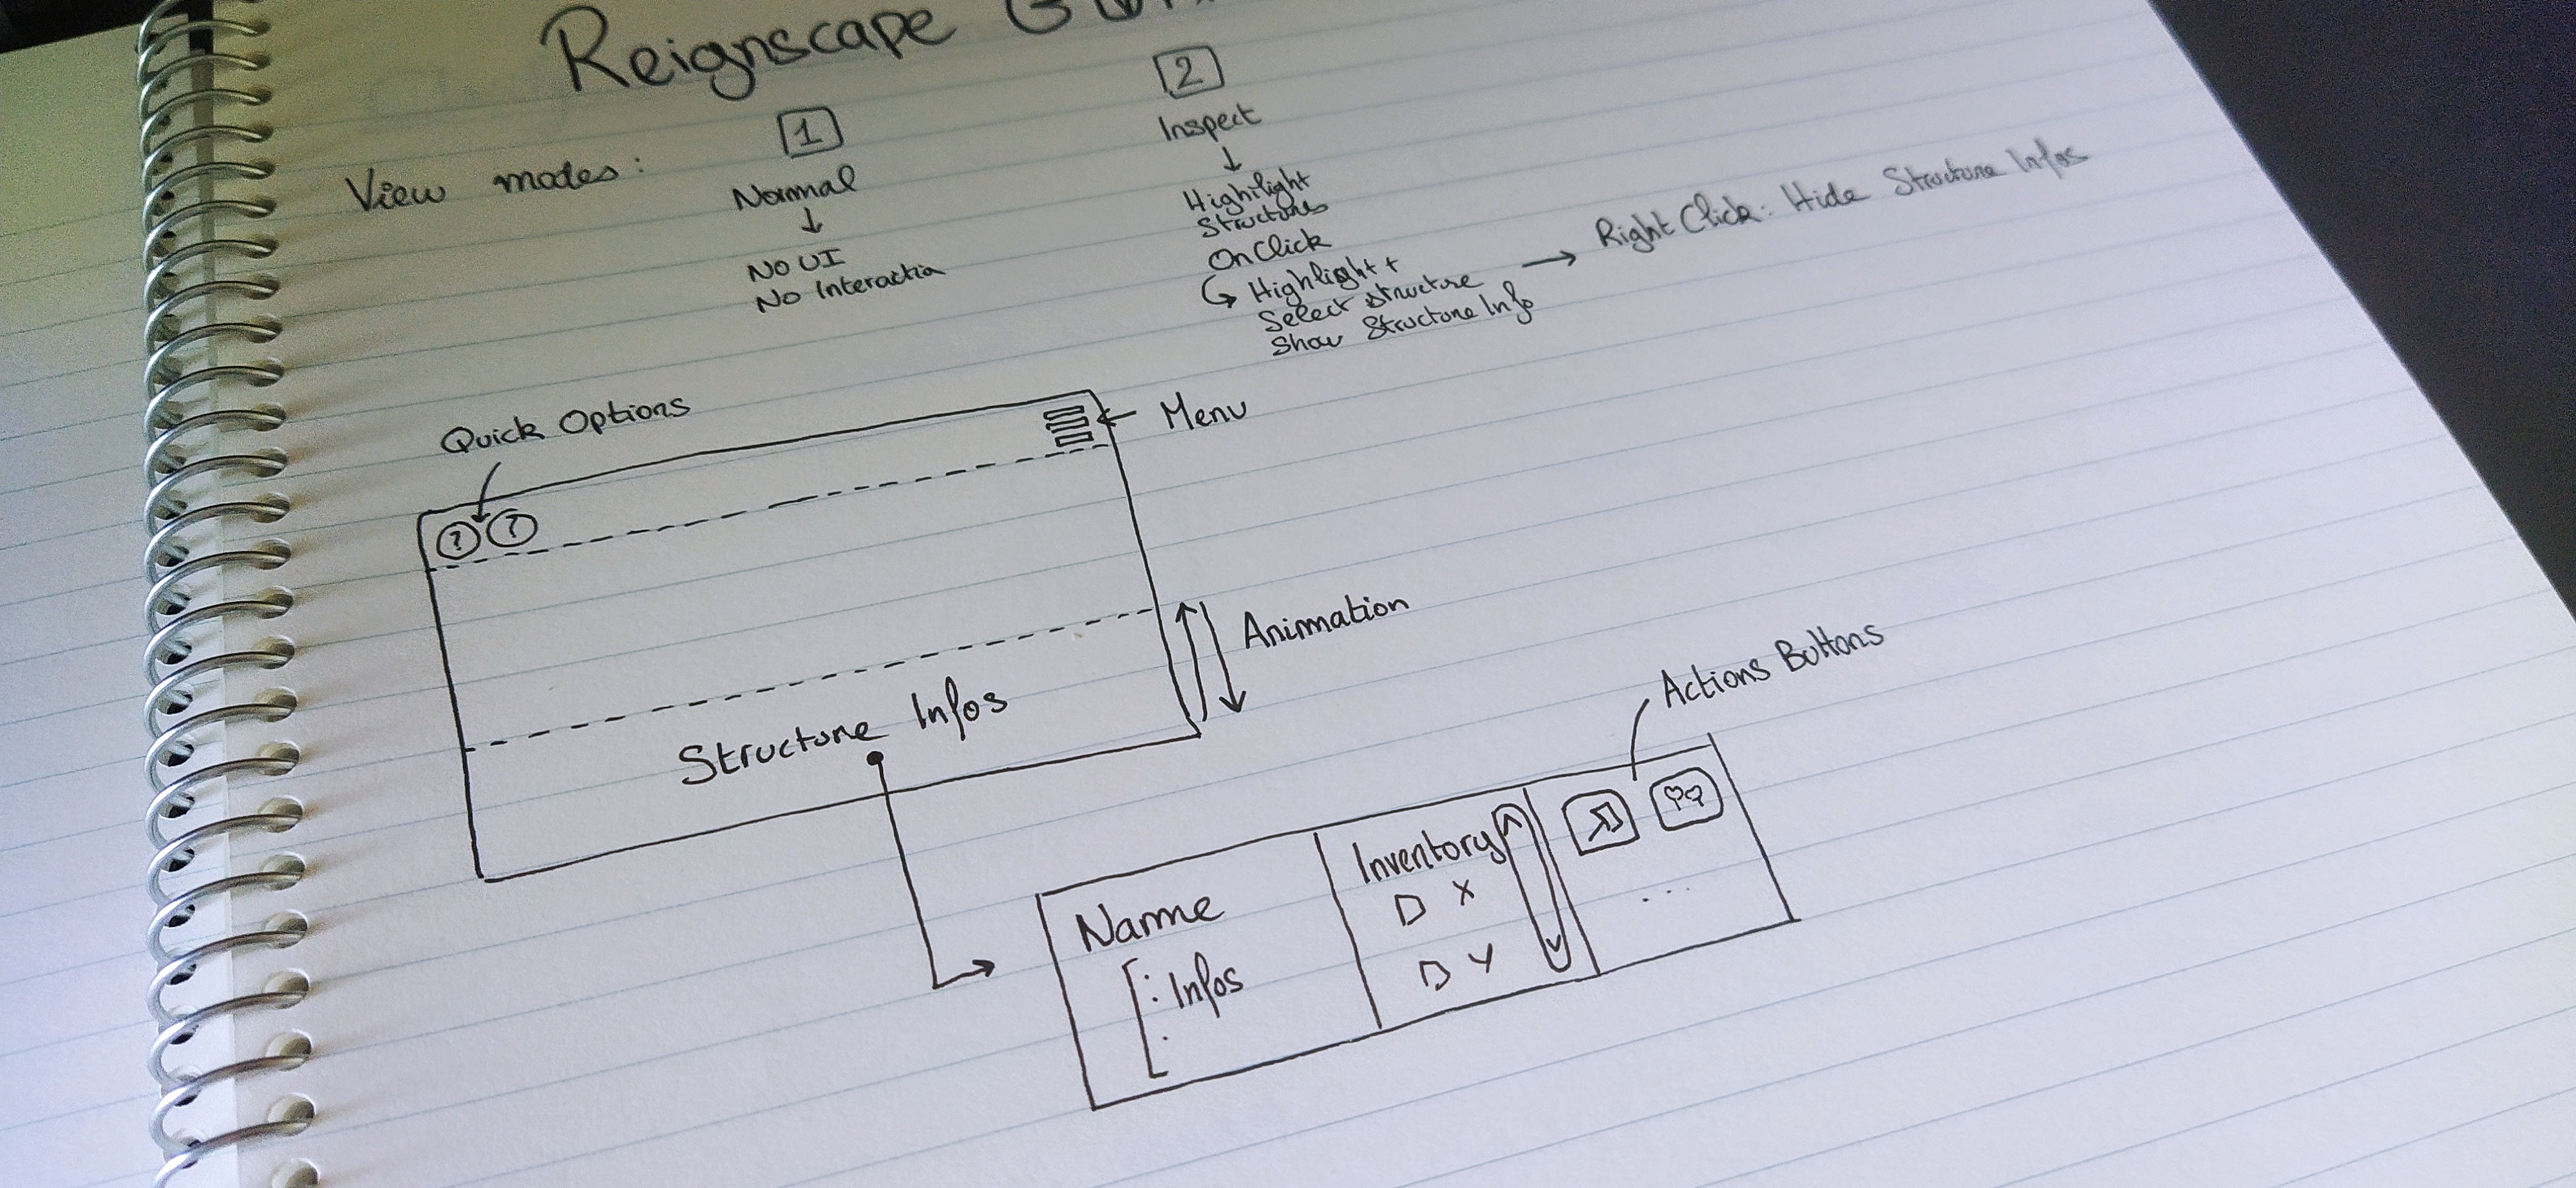 Reignscape
1
2
View modes:
Normal
Inspect
No UI
No Interaction
Highlight
Structures
On Click
Highlight +
Select structure
Show Structure Info
Right Click: Hide Structure Infos
Quick Options
Menu
? ?
Animation
Structure Infos
Actions Buttons
Name
: Infos
Inventory
X
Y
...